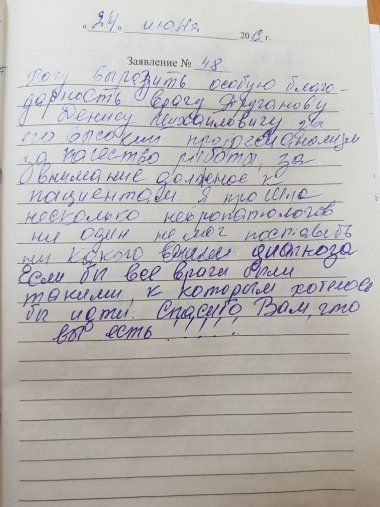 « 24 » июня 2019 г.
Заявление № 48
Хочу выразить особую благо-
дарность врачу Друганову
Денису Михайловичу за
его высокий профессианолизм
за качество работы, за
внимание должное к
пациентам. Я прошла
несколько невропатологов
ни один не мог поставить
ни какого диагноза
Если бы все врачи были
такими, к которым хотелось
бы идти. Спасибо Вам, что
вы есть . . ! ! ! !